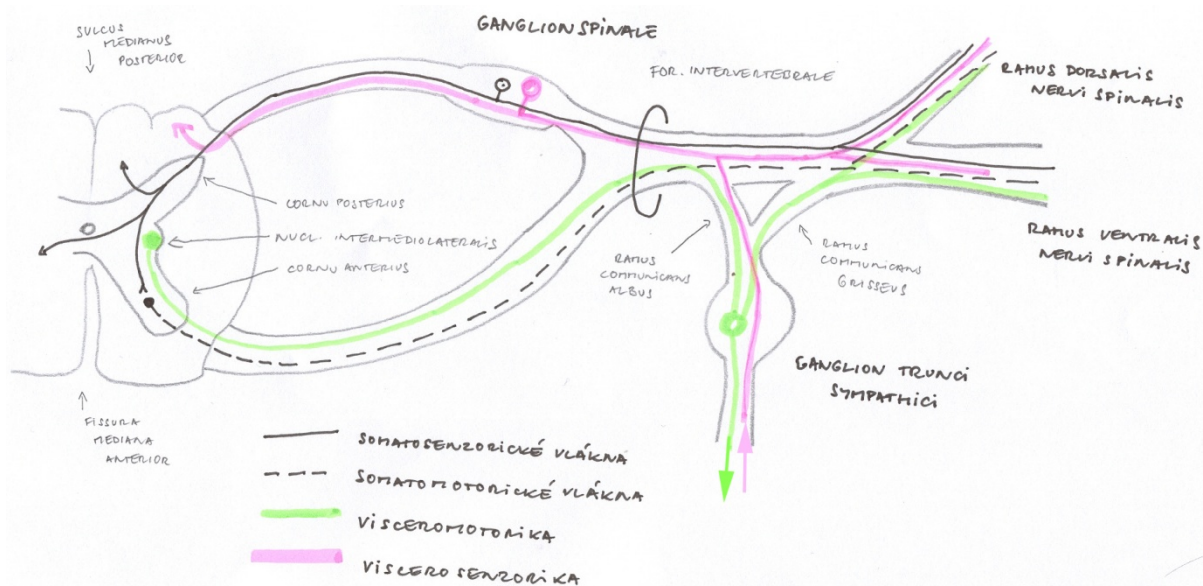 SULCUS
MEDIANUS
POSTERIOR
GANGLION SPINALE
FOR. INTERVERTEBRALE
RAMUS DORSALIS
NERVI SPINALIS
CORNU POSTERIUS
NUCL. INTERMEDIOLATERALIS
CORNU ANTERIUS
RAMUS
COMMUNICANS
ALBUS
RAMUS
COMMUNICANS
GRISSEUS
RAMUS VENTRALIS
NERVI SPINALIS
GANGLION TRUNCI
SYMPATHICI
FISSURA
MEDIANA
ANTERIOR
SOMATOSENZORICKÉ VLÁKNA
SOMATOMOTORICKÉ VLÁKNA
VISCEROMOTORIKA
VISCEROSENZORIKA